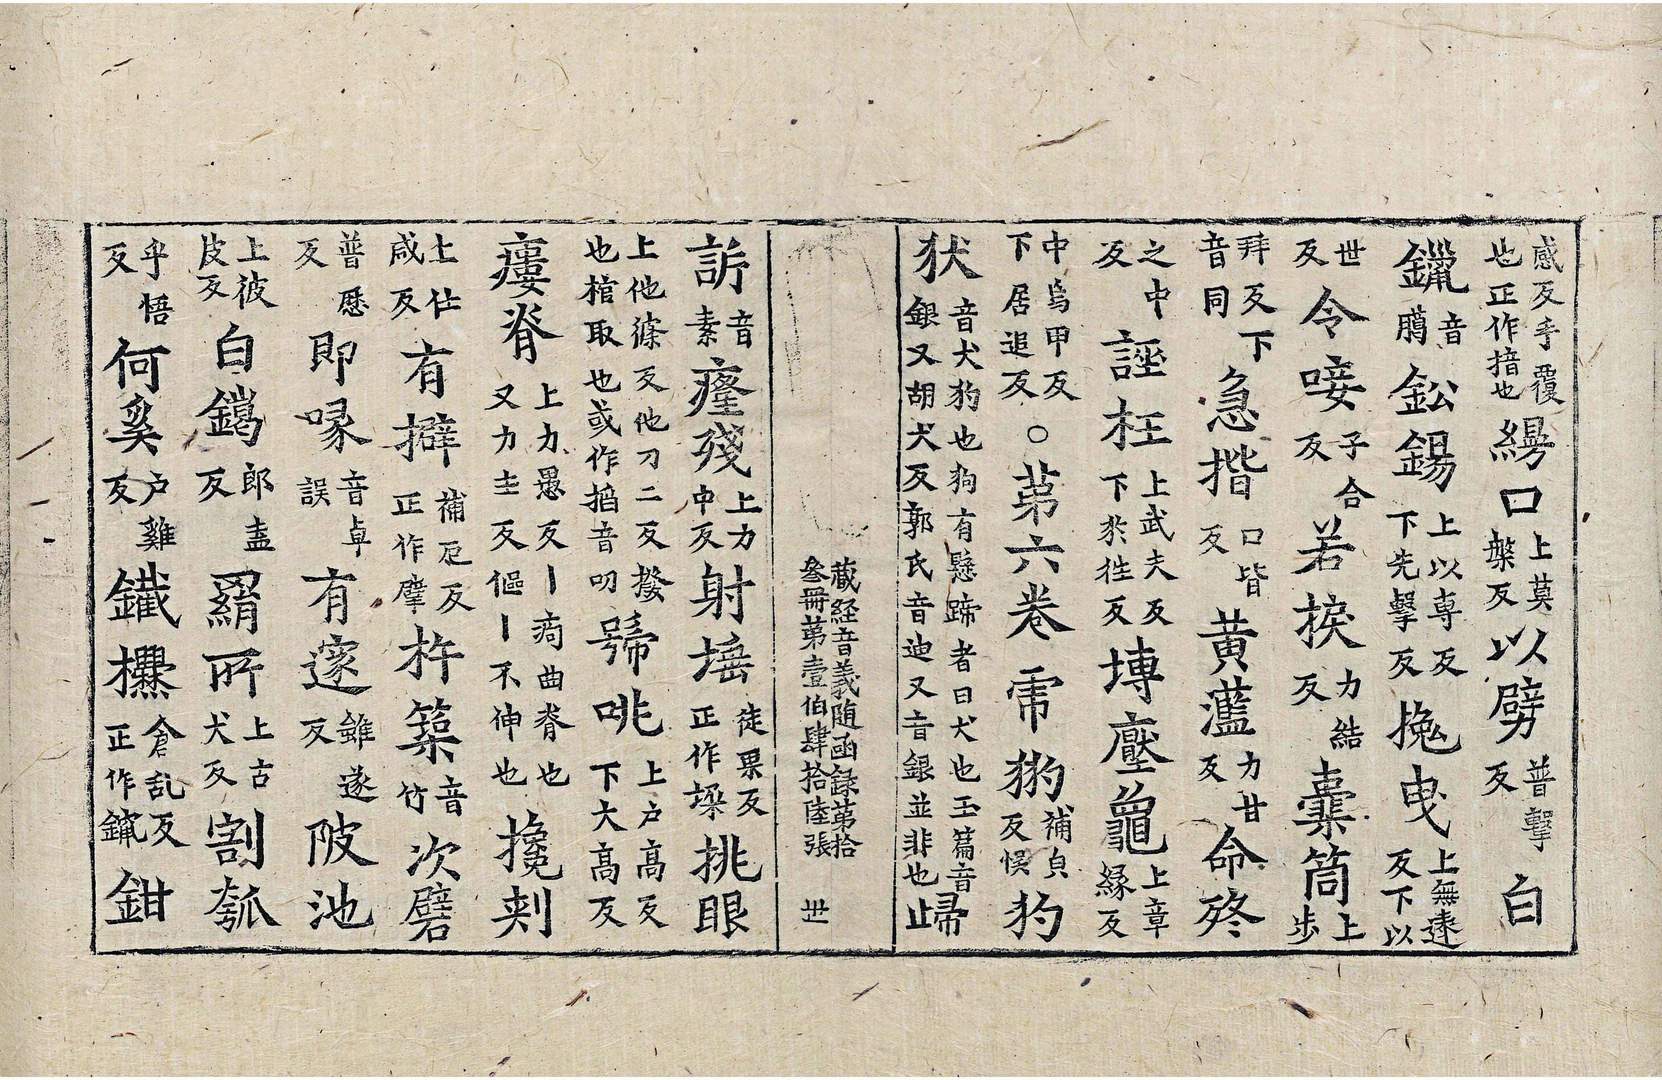 感反手覆也正作揞也縵口上莫槃反以劈普擊反白
鑞音臈鈆錫上以專反下先擊反挽曳上無遠反下以
世反令唼子合反若捩力結反橐筒上步
拜反下音同急揩口皆反黃蘫力甘反命終
之中反誣枉上武夫反下於往反塼壓龜上章緣反
中烏甲反下居追反○第六卷虎豹補皃反悮犳
狀音犬犳也狗有懸蹄者曰犬也玉篇音銀又胡犬反郭氏音迪又音銀並非也歸
藏經音義随函録第拾叄冊第壹伯肆拾陸張 丗
訴音素瘂殘上力中反射堶徒果反正作垜挑眼
上他絛反他刀二反撥也棺取也或作搯音叨號咷上户高反下大高反
瘻脊上力愚反丨痀曲脊也又力主反傴丨不伸也攙刺
上仕咸反有擗補厄反正作擘杵築音竹次礕
普歷反即啄音卓誤有邃雖遂反陂池
上彼皮反白鑞郎盍反羂所上古犬反割瓠
乎悟反何奚户雞反鐵欑倉乱反正作鑹鉗